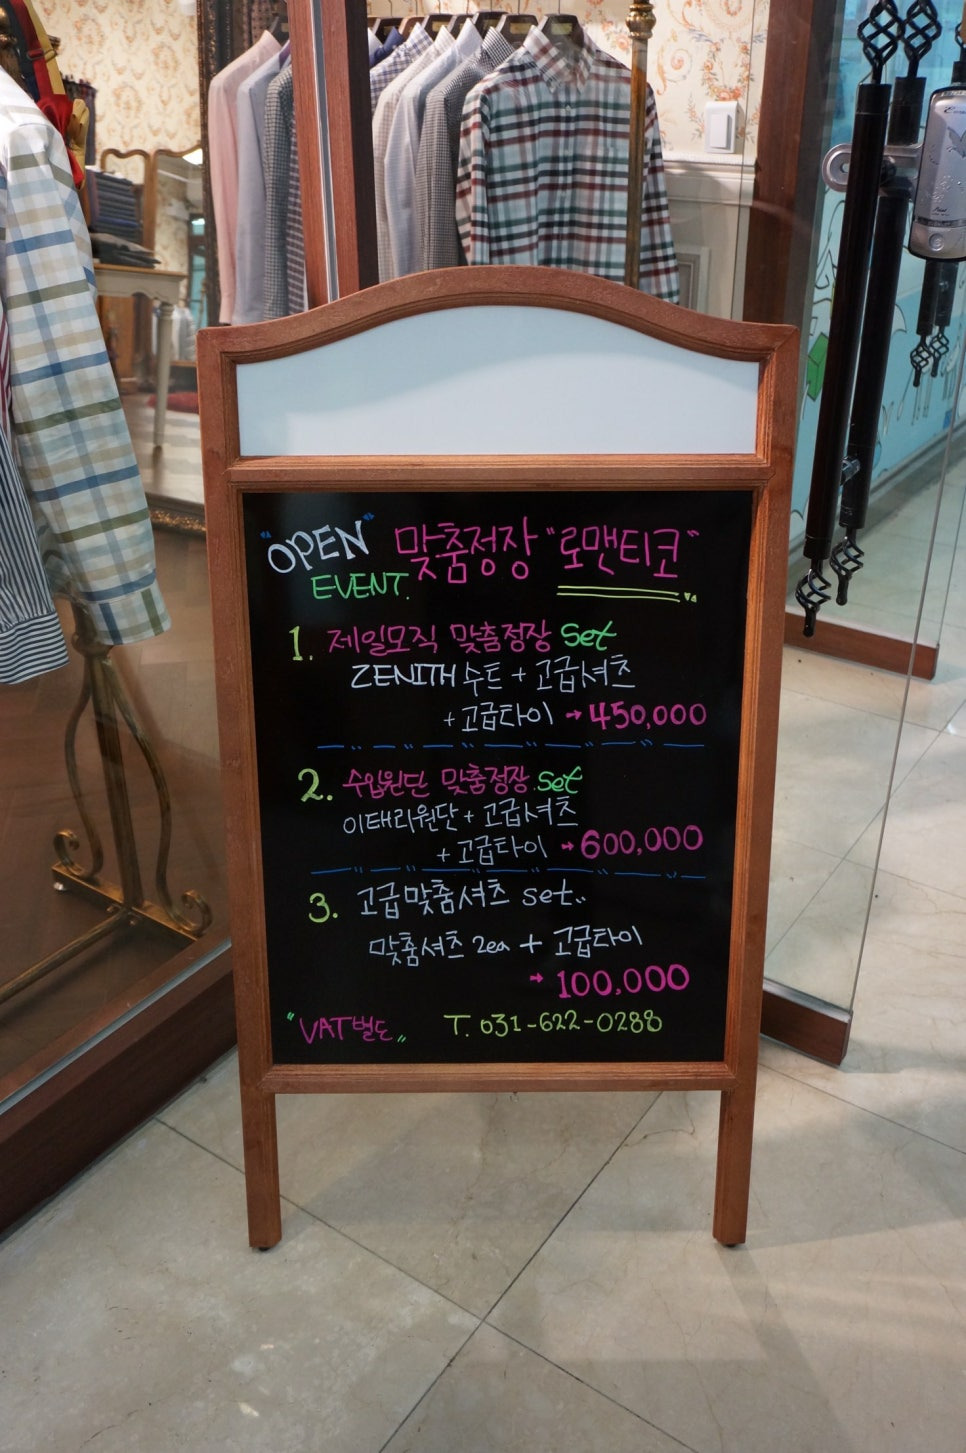 "OPEN" 맞춤정장 "로맨티코"
EVENT.
1. 제일모직 맞춤정장 set
ZENITH 수트 + 고급셔츠
+ 고급타이 → 450,000
2. 수입원단 맞춤정장 set
이태리원단 + 고급셔츠
+ 고급타이 → 600,000
3. 고급맞춤셔츠 set..
맞춤셔츠 2ea + 고급타이
→ 100,000
"VAT별도" T. 031-622-0288